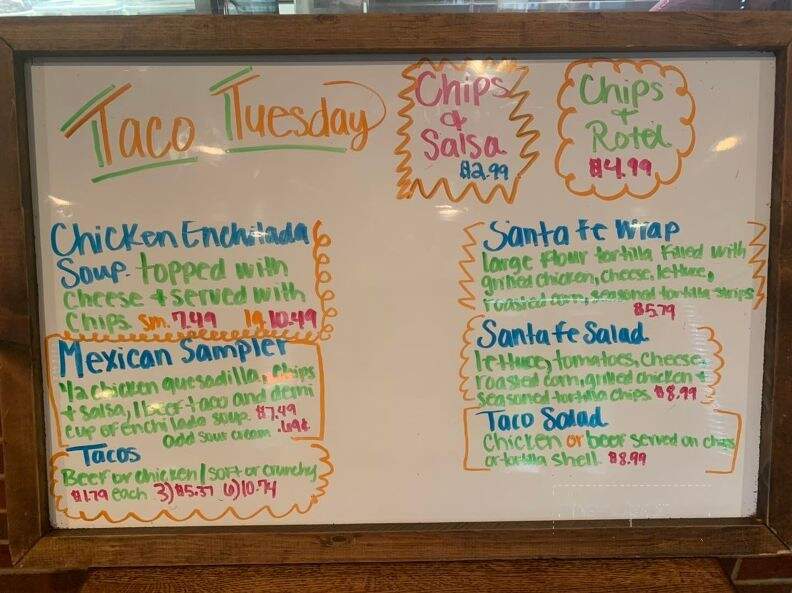 Taco Tuesday
Chips
&
Salsa
$2.99
Chips
+
Rotel
$4.99
Chicken Enchilada
Soup topped with
cheese + served with
chips. sm. 7.49 lg 10.49
Mexican Sampler
1/2 chicken quesadilla, chips
+ salsa, 1 beef taco and demi
cup of enchilada soup. $7.49
Add sour cream .69¢
Tacos
Beef or chicken/soft or crunchy
$1.79 each 3) $5.37 6) 10.74
Santa Fe Wrap
large flour tortilla filled with
grilled chicken, cheese, lettuce,
roasted corn, seasoned tortilla strips
$5.79
Santa Fe Salad
lettuce, tomatoes, cheese,
roasted corn, grilled chicken +
seasoned tortilla chips. $8.99
Taco Salad
Chicken or beef served on chips
or tortilla shell. $8.99